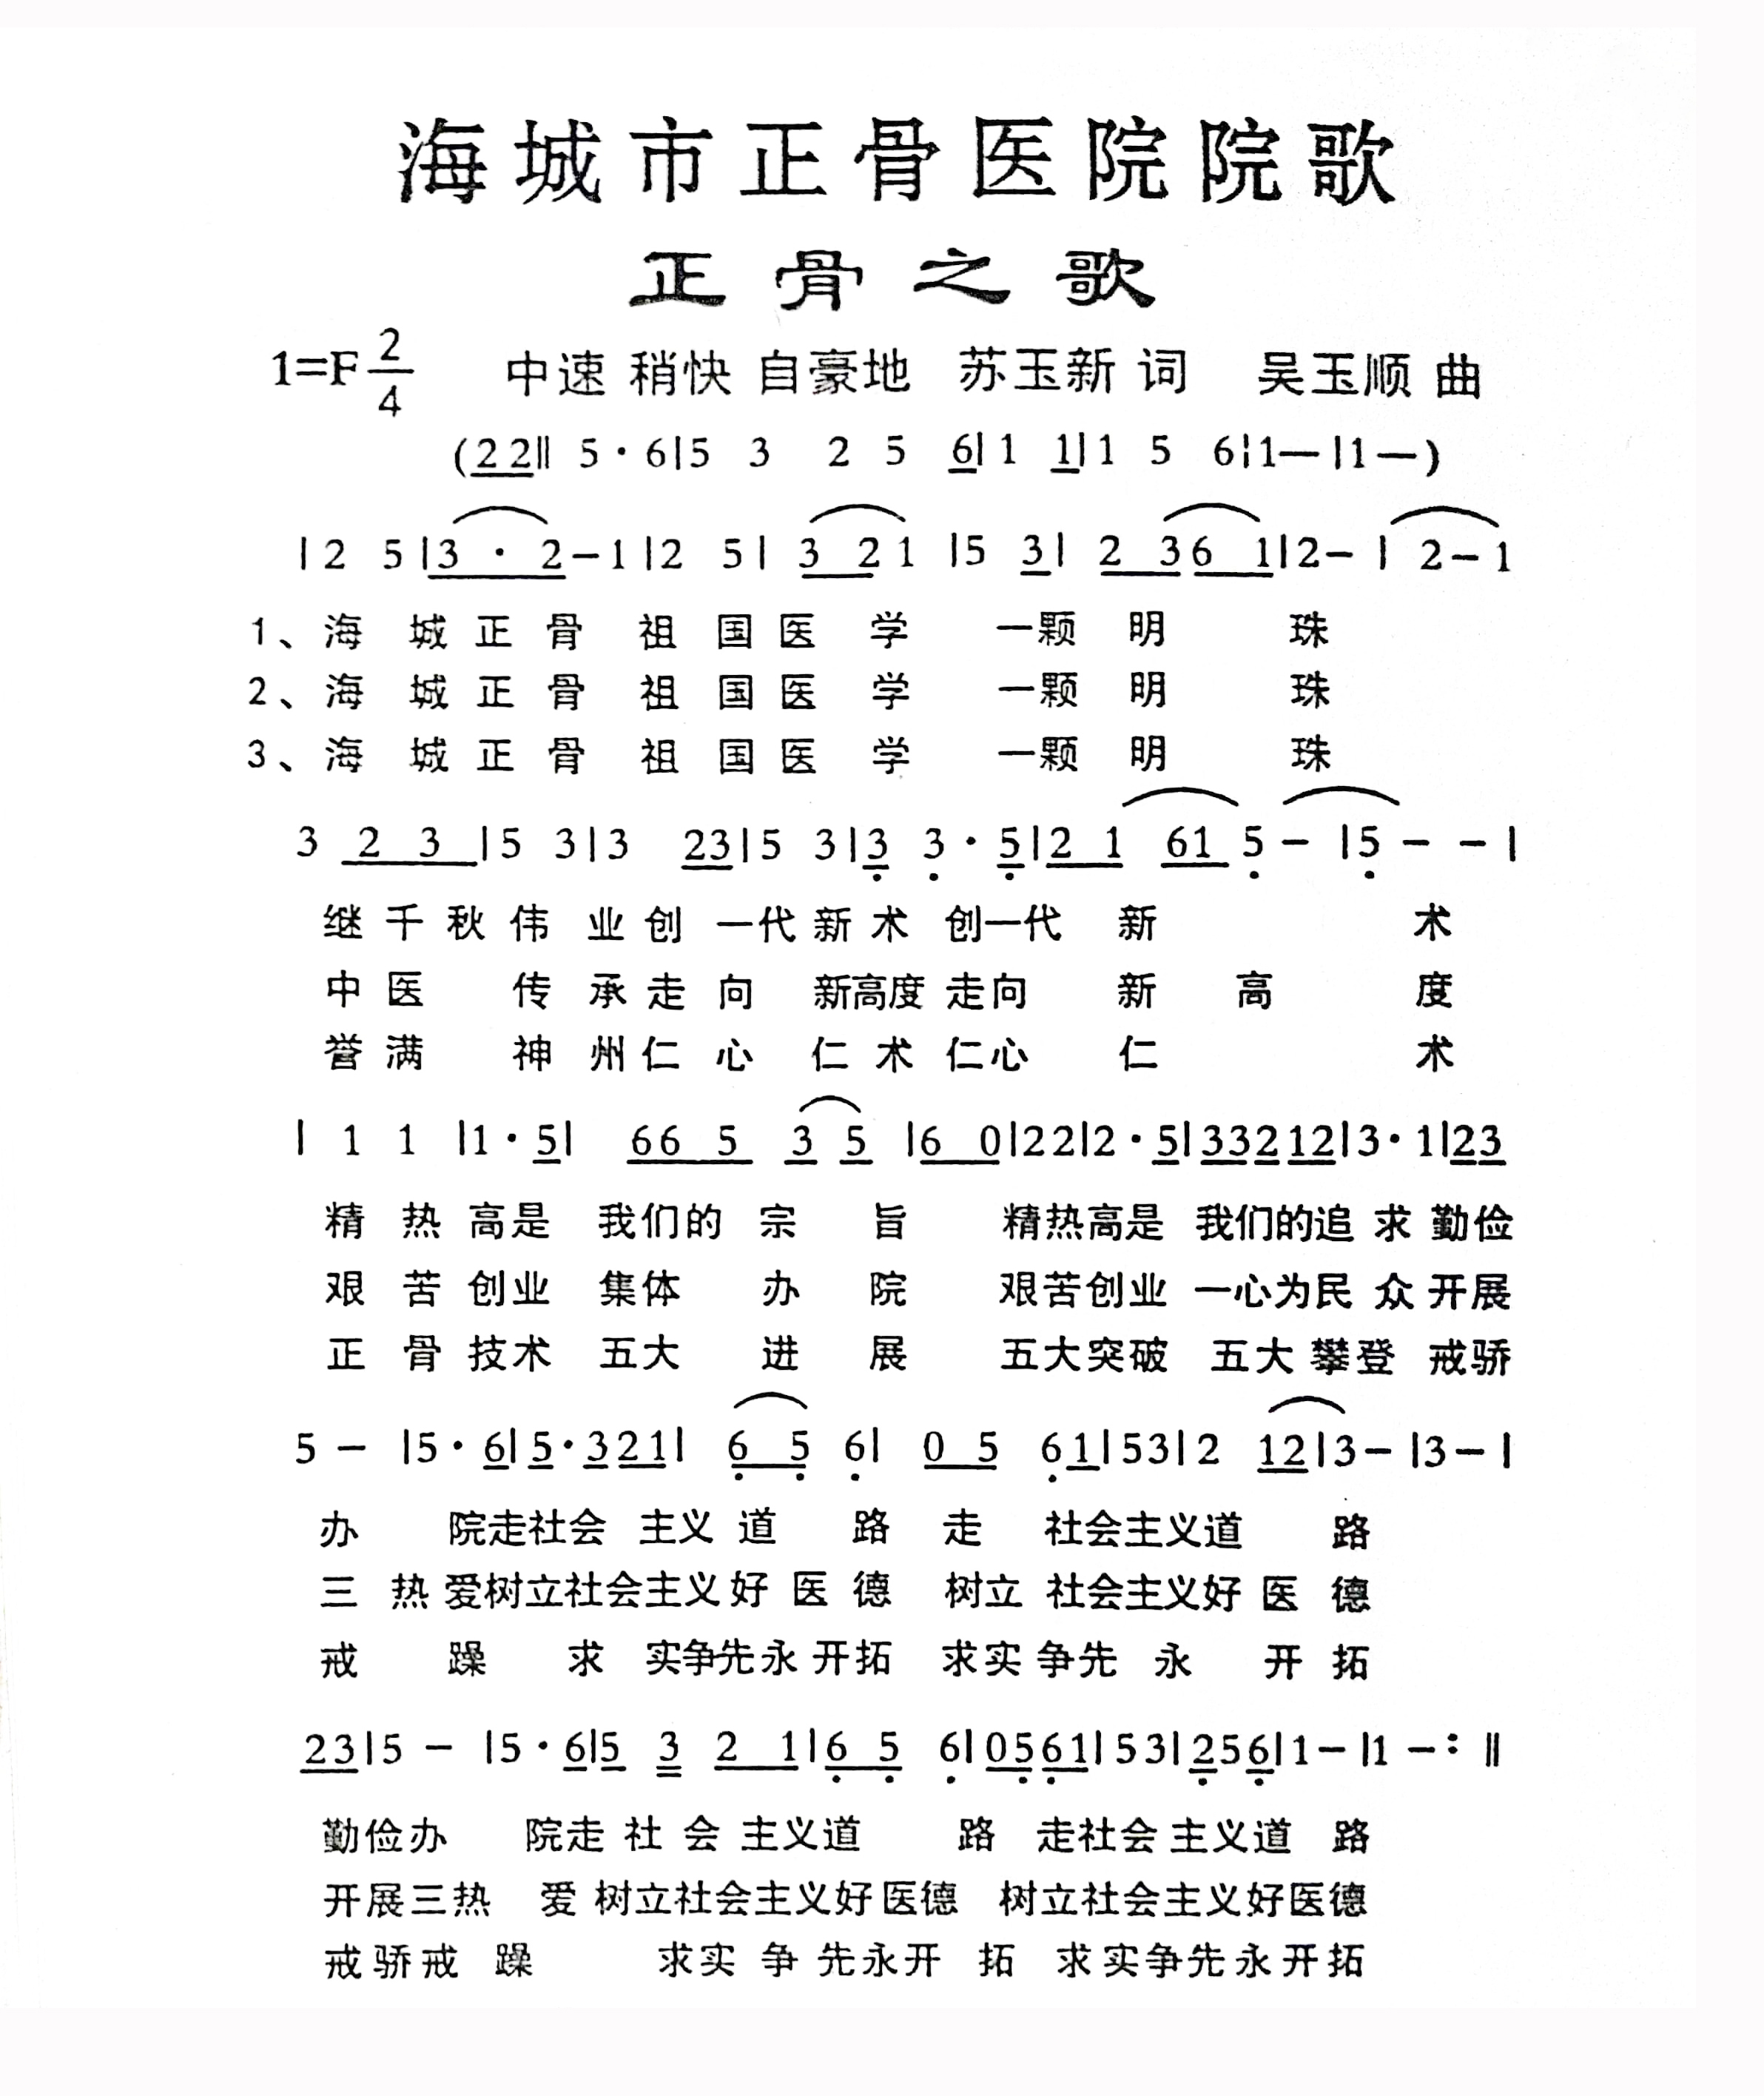 海城市正骨医院院歌
正骨之歌
1=F 2/4 中速 稍快 自豪地 苏玉新 词 吴玉顺 曲
(22‖ 5·6|5 3 2 5 6|1 1|1 5 6|1—|1—)
|2 5|3·2–1|2 5| 3 2 1 |5 3| 2 3 6 1|2–| 2–1
1、海城正骨祖国医学 一颗明珠
2、海城正骨祖国医学 一颗明珠
3、海城正骨祖国医学 一颗明珠
3 2 3|5 3|3 23|5 3|3 3·5|2 1 61 5–|5– –|
继千秋伟业创一代新术 创一代新术
中医传承走向新高度 走向新高度
誉满神州仁心仁术 仁心仁术
| 1 1 |1·5| 66 5 3 5 |6 0|22|2·5|33212|3·1|23
精热高是 我们的宗旨 精热高是 我们的追求 勤俭
艰苦创业 集体办院 艰苦创业 一心为民众 开展
正骨技术 五大进展 五大突破 五大攀登 戒骄
5 – |5·6|5·321| 6 5 6| 0 5 61|53|2 12|3–|3–|
办 院走社会 主义道路 走 社会主义道路
三热爱树立社会主义好医德 树立社会主义好医德
戒躁 求实争先永开拓 求实争先永开拓
23|5 – |5·6|5 3 2 1|6 5 6|0561|53|256|1–|1 –: ‖
勤俭办 院走社会主义道路 走社会主义道路
开展三热爱 树立社会主义好医德 树立社会主义好医德
戒骄戒躁 求实争先永开拓 求实争先永开拓